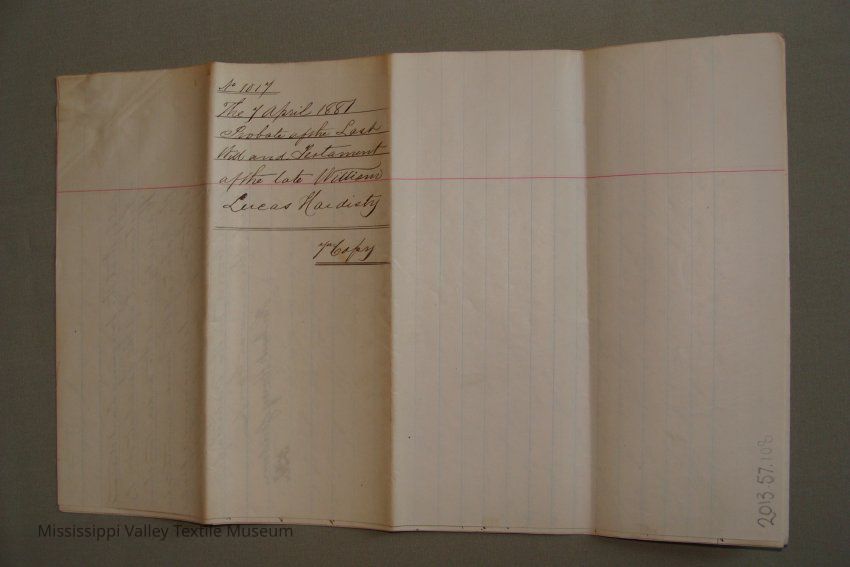 No 1017
The 7 April 1881
Probate of the Last
Will and Testament
of the late William
Lucas Hardisty
Copy
2013.57.108
Mississippi Valley Textile Museum